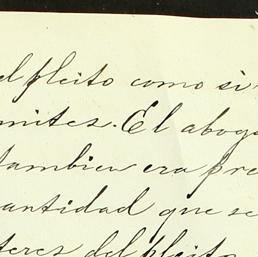 el pleito como si
mites. El aboga
tambien era pre
antidad que se
teres del pleito